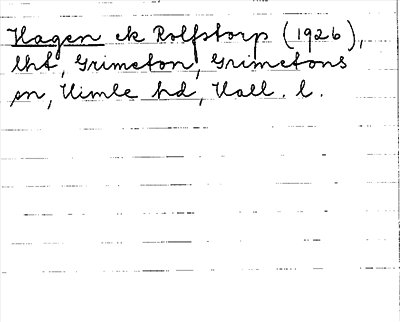 Hagen ek Rolfstorp (1926),
lht, Grimeton, Grimetons
sn, Himle hd, Hall. l.